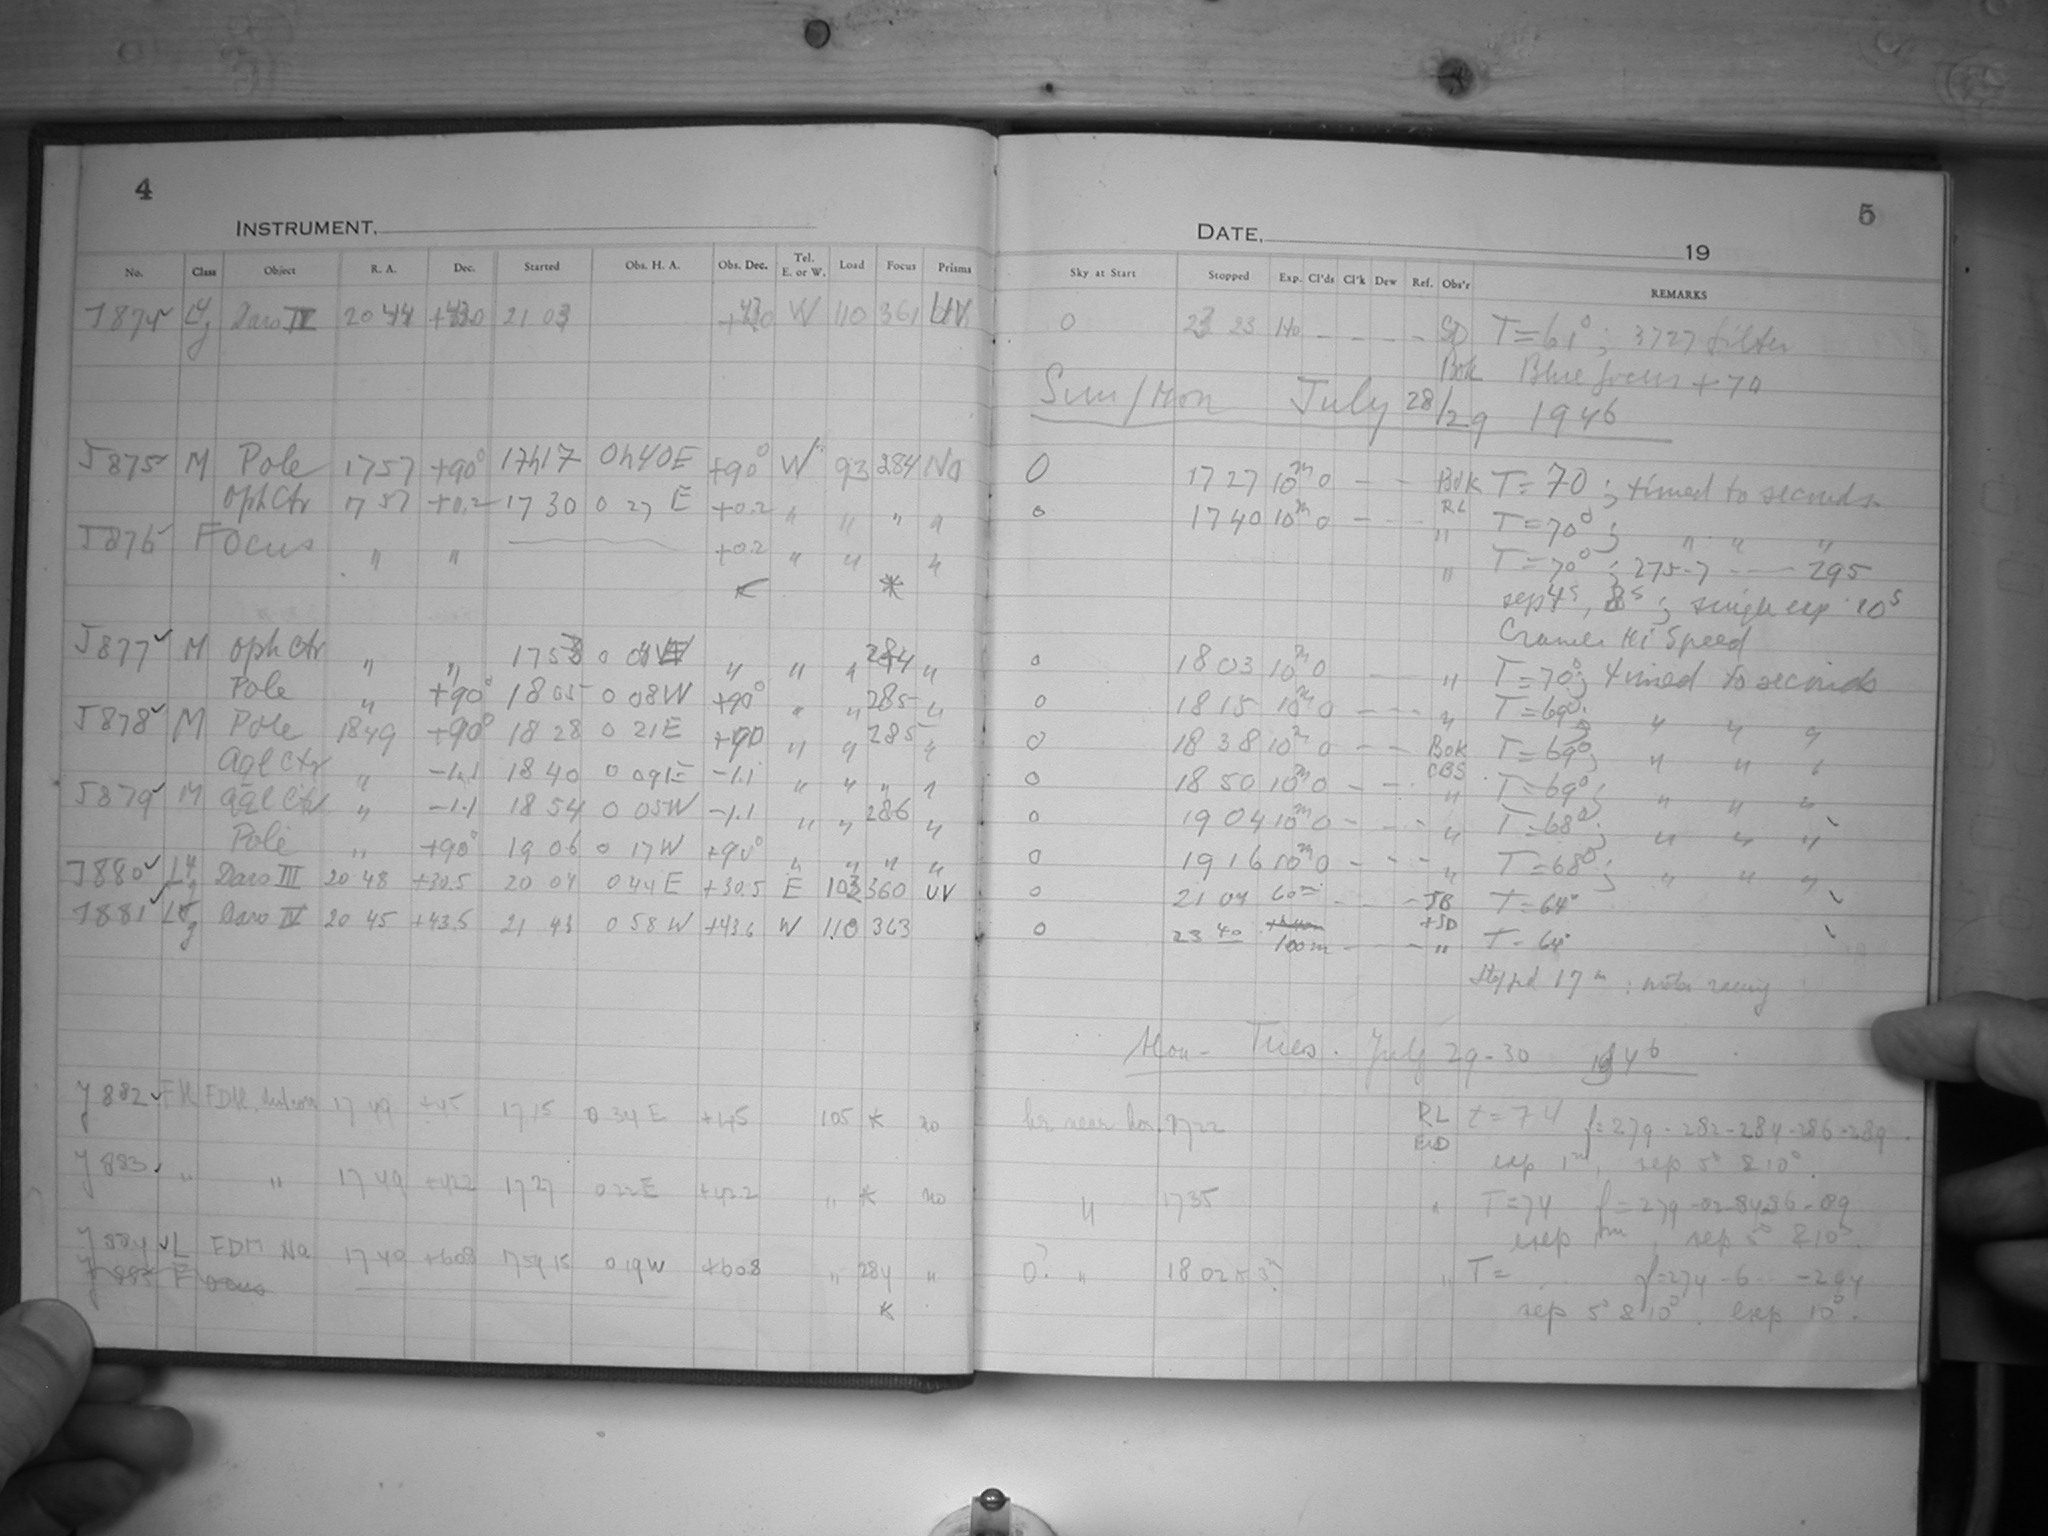 4
INSTRUMENT,
No. Class Object R. A. Dec. Started Obs. H. A. Obs. Dec. Tel. E. or W. Load Focus Prisms
J874 Daro IV 20 44 21 03 W 110 361 UV
J875 M Pole 1757 +90° 17h17 0h40E +90° W 93 284 No
Oph Ctr 17 57 +0.2 17 30 0 27 E +0.2 " " " "
J876 Focus " " +0.2 " " "
*
J877 M Oph Ctr " " 175 0 " " " 284 "
Pole " +90° 18 05 0 08W +90° " " 285 "
J878 M Pole 1849 +90° 18 28 0 21E +90 " " 285 "
Aql Ctr " -1.1 18 40 0 09E -1.1 " " " "
J879 M Aql Ctr " -1.1 18 54 0 05W -1.1 " " 286 "
Pole " +90° 19 06 0 17W +90° " " " "
J880 Daro III 20 48 +30.5 20 04 0 44 E +30.5 E 103 360 UV
J881 Daro IV 20 45 +43.5 21 43 0 58 W +43.6 W 110 363
J882 FDH 17 49 +45 17 15 0 34 E +45 105 * no
J883 " " 17 49 +42.2 1727 0 22 E +42.2 " * no
J884 L EDH Na 17 49 +60.8 1759 15 0 19W +60.8 " 284 "
J885 Focus
*
5
DATE, 19
Sky at Start Stopped Exp. Cl'ds Cl'k Dew Ref. Obs'r REMARKS
0 23 23 140 - - - - SD T=61° ; 3727 filter
Bok Blue focus +70
Sun/Mon July 28/29 1946
0 1727 10m 0 - - Bok T=70 ; timed to seconds
RL
0 1740 10m 0 - - - " T=70° ; " " "
" T=70° ; 275-7 - 295
sep 4s, 8s ; single exp 10s
Cramer Hi Speed
0 1803 10m 0 - - " T=70° ; timed to seconds
0 1815 10m 0 - - - " T=69° ; " " "
0 18 38 10m 0 - - Bok T=69° ; " " "
CBS
0 18 50 10m 0 - - - " T=69° ; " " "
0 19 04 10m 0 - - - " T=68° ; " " "
0 19 16 10m 0 - - - " T=68° ; " " "
0 21 04 60m - - - - JB T=64°
+SD
0 23 40 100m - - - - " T=64°
Stopped 17m ; motor racing
Mon-Tues. July 29-30 1946
1722 RL t=74 f=279-282-284-286-289
exp 1m, sep 5s & 10s.
" 1735 " T=74 f=279-82-84-86-89
exp 1m, sep 5s & 10s.
0? " 18 02 " T= f=274-6 -294
sep 5s & 10s. exp 10s.